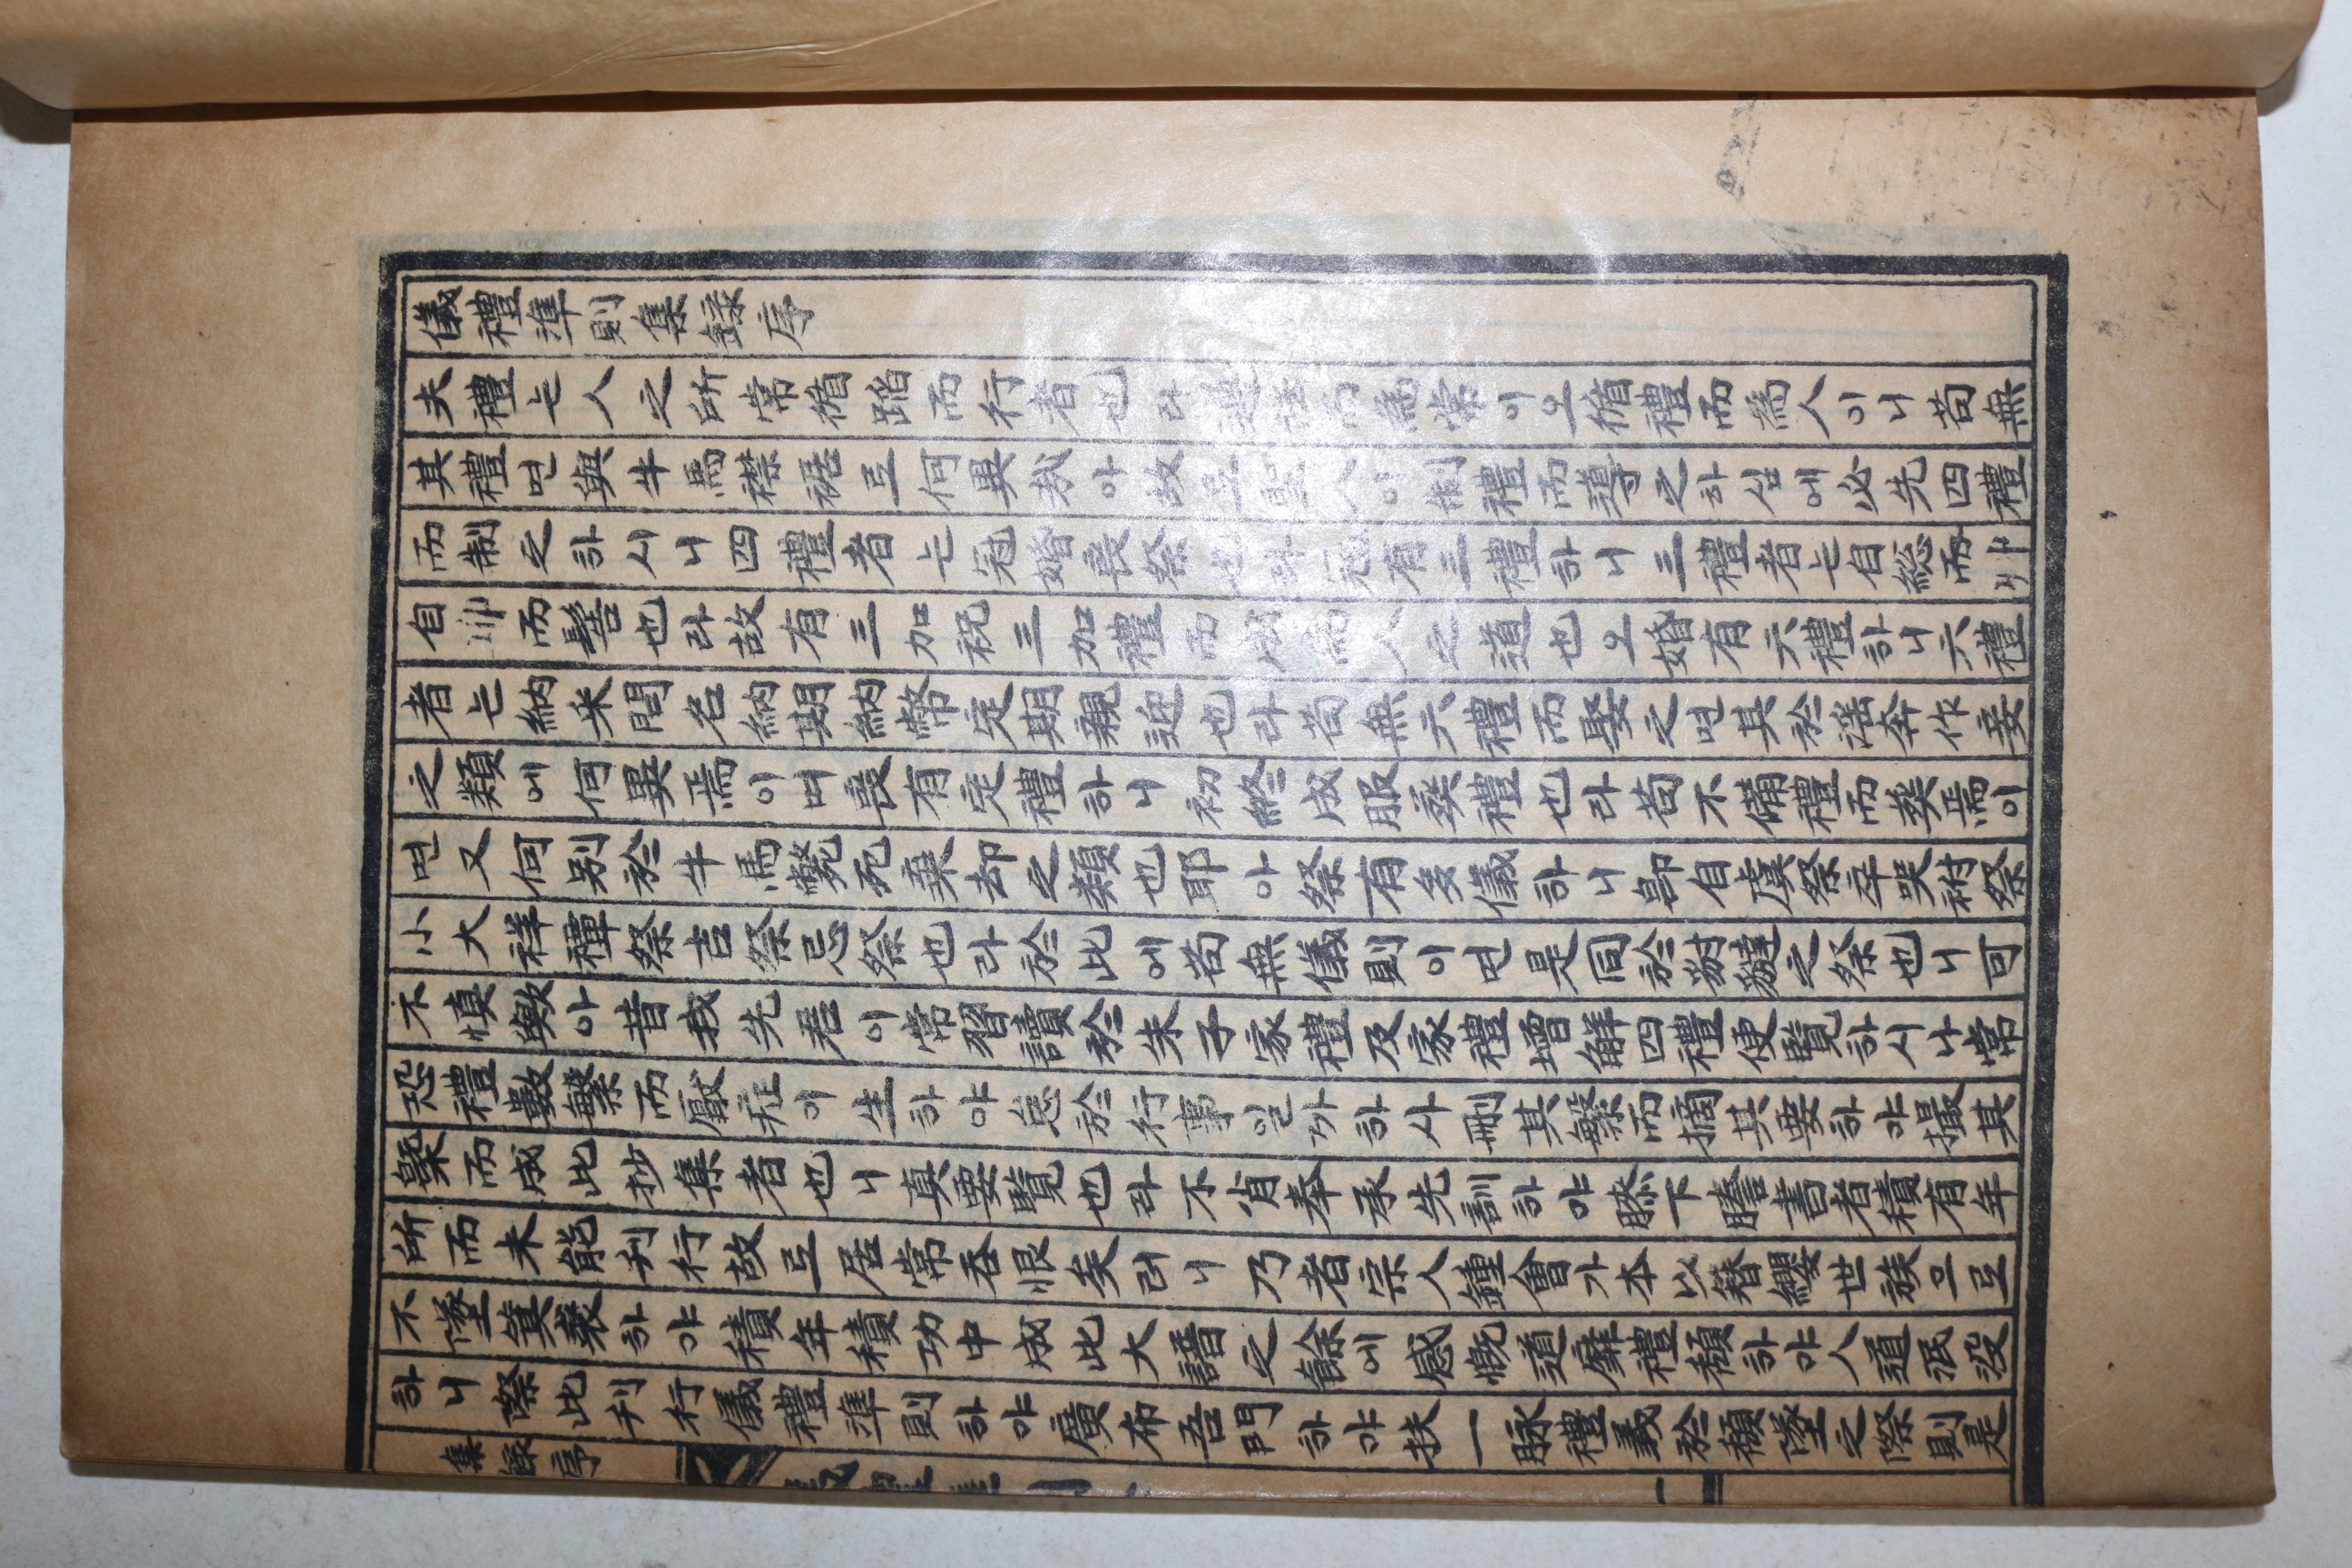 儀禮準則集錄序
夫禮는人之所常循蹈而行者也라而爲常이오循禮而爲人이니苟無
其禮면與牛馬襟裾로何異哉아故로聖人이制禮而導之하심에必先四禮
而制之하시니四禮者는冠婚喪祭也라冠有三禮하니三禮者는自総而丱
自丱而髻也라故有三加祝三加禮而成爲人之道也오婚有六禮하니六禮
者는納采問名納期納幣定期親迎也라苟無六禮而娶之면其於淫奔作妾
之類에何異焉이며喪有定禮하니初終成服葬禮也라苟不備禮而葬焉이
면又何別於牛馬斃死棄却之類也耶아祭有多儀하니卽自虞祭卒哭祔祭
小大祥禫祭吉祭忌祭也라於此에苟無儀則이면是同於豺獺之祭也니可
不愼歟아昔我先君이常習讀於朱子家禮及家禮增解四禮便覽하시나常
恐禮數繁而厭症이生하야怠於行事일까하사刪其繁而摘其要하야撮其
槩而成此抄集者也니眞要覽也라不肖奉承先訓하야膝下謄書者積有年
所而未能刋行故로居常呑恨矣러니乃者宗人鍾會가本以簪纓世族으로
不墜箕裘하야積年積功中成此大譜之餘에感慨道廢禮頹하야人道泯没
하니際此刋行儀禮準則하야廣布吾門하야扶一脉禮義於頹墜之際則是
集錄序